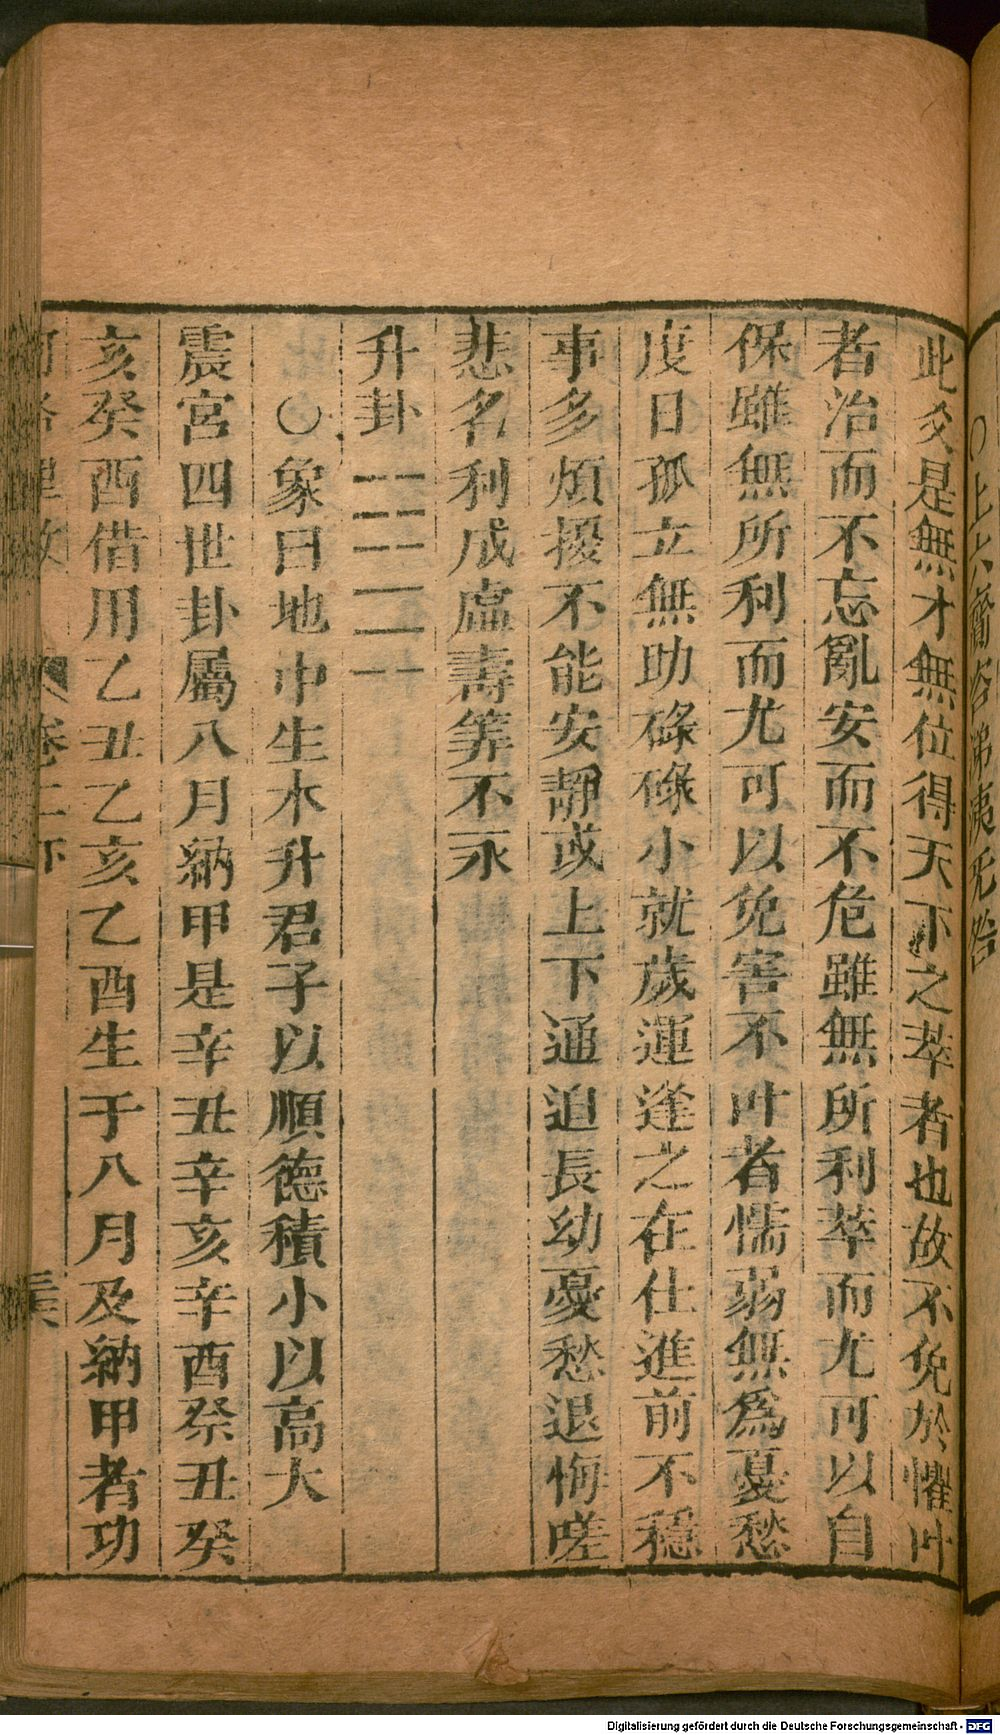 ○上六齎咨涕洟无咎
此爻是無才無位得天下之萃者也故不免於懼叶
者治而不忘亂安而不危雖無所利萃而尤可以自
保雖無所利而尤可以免害不叶者懦弱無為憂愁
度日孤立無助碌碌小就歲運逢之在仕進前不穩
事多煩擾不能安靜或上下逼迫長幼憂愁退悔嗟
悲名利成虛壽筭不永
升卦
○象曰地中生木升君子以順德積小以高大
震宮四世卦屬八月納甲是辛丑辛亥辛酉癸丑癸
亥癸酉借用乙丑乙亥乙酉生于八月及納甲者功
卷二下
Digitalisierung gefördert durch die Deutsche Forschungsgemeinschaft - DFG